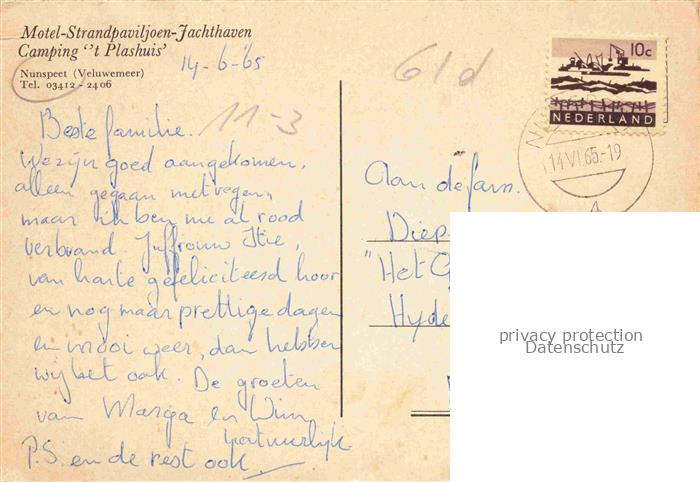 Motel-Strandpaviljoen-Jachthaven
Camping "'t Plashuis'
Nunspeet (Veluwemeer)
Tel. 03412 - 2406
14-6-'65
61d
11-3
10c
NEDERLAND
14 VI.65.-19
4
Beste familie.
We zijn goed aangekomen,
alleen gegaan met regen,
maar ik ben nu al rood
verbrand. Juffrouw Itie,
van harte gefeliciteerd hoor
en nog maar prettige dagen
en mooi weer, dan hebben
wij het ook. De groeten
van Marga en Wim
natuurlijk
P.S. en de rest ook
Aan de fam.
Diep
"Het G
Hyde
privacy protection
Datenschutz